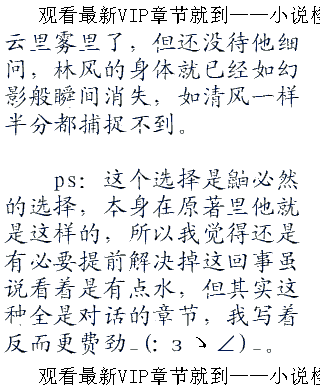 观看最新VIP章节就到——小说检
云里雾里了，但还没待他细
问，林风的身体就已经如幻
影般瞬间消失，如清风一样
半分都捕捉不到。
ps：这个选择是鼬必然
的选择，本身在原著里他就
是这样的，所以我觉得还是
有必要提前解决掉这回事虽
说看着是有点水，但其实这
种全是对话的章节，我写着
反而更费劲_(:зヽ∠)_。
观看最新VIP章节就到——小说检